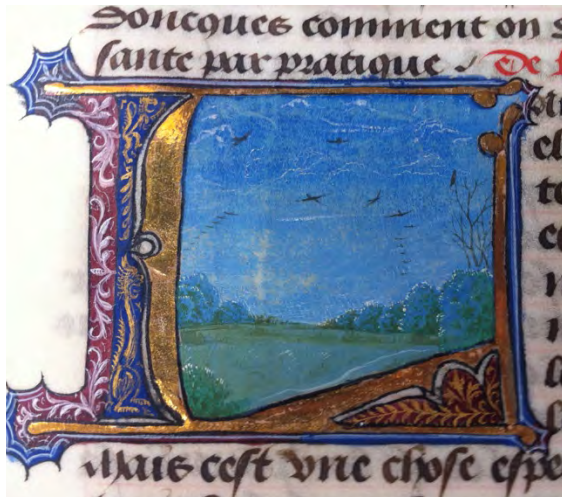 Doncques comment on s
sante par pratique . De
L
Mais cest vne chose espe